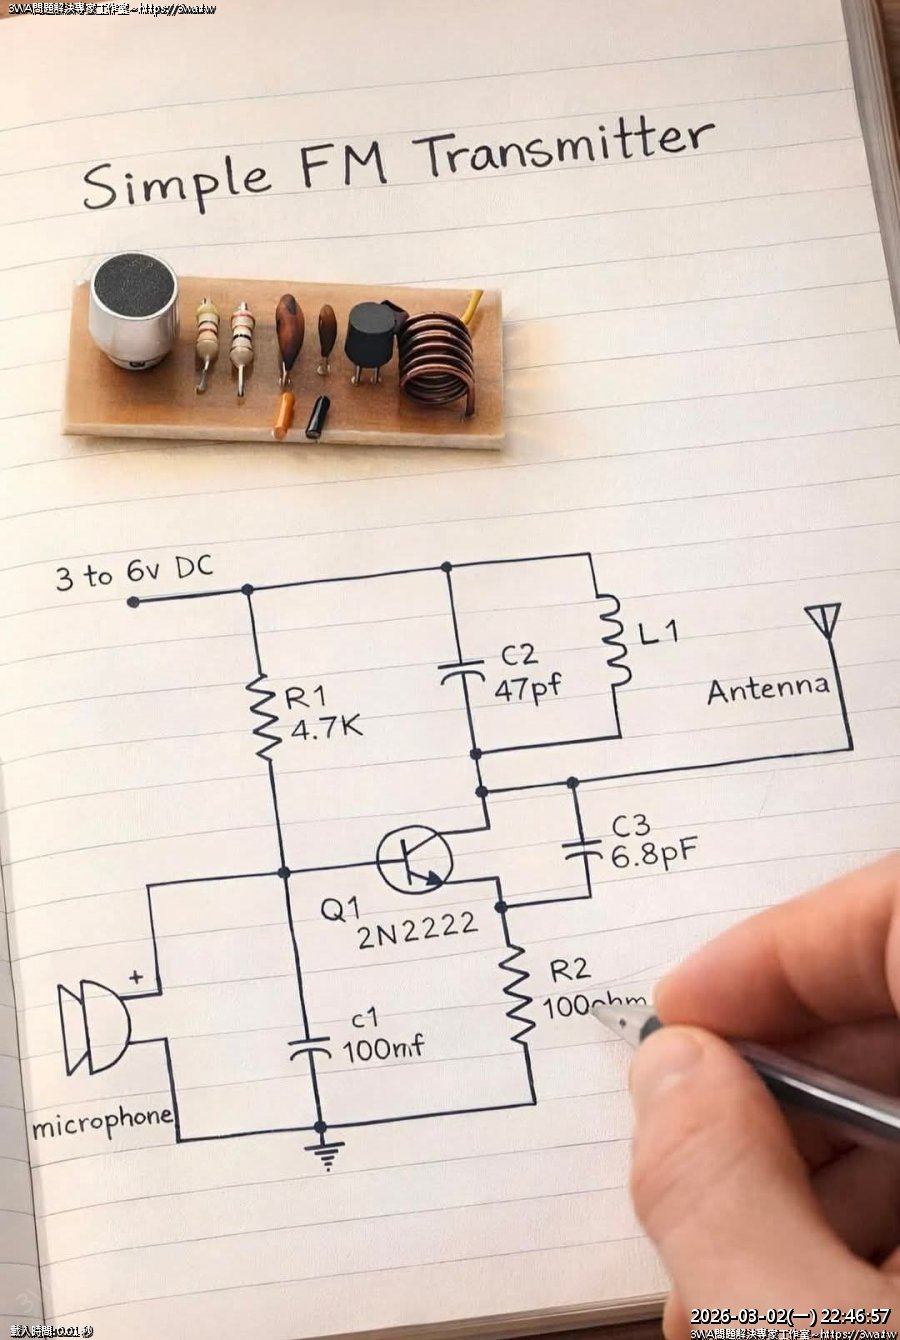 3WA問題解決專家工作室~https://3wa.tw
Simple FM Transmitter
3 to 6v DC
R1
4.7K
C2
47pf
L1
Antenna
C3
6.8pF
Q1
2N2222
+
R2
100ohm
c1
100nf
microphone
載入時間:0.01 秒
2026-03-02(一) 22:46:57
3WA問題解決專家工作室~https://3wa.tw